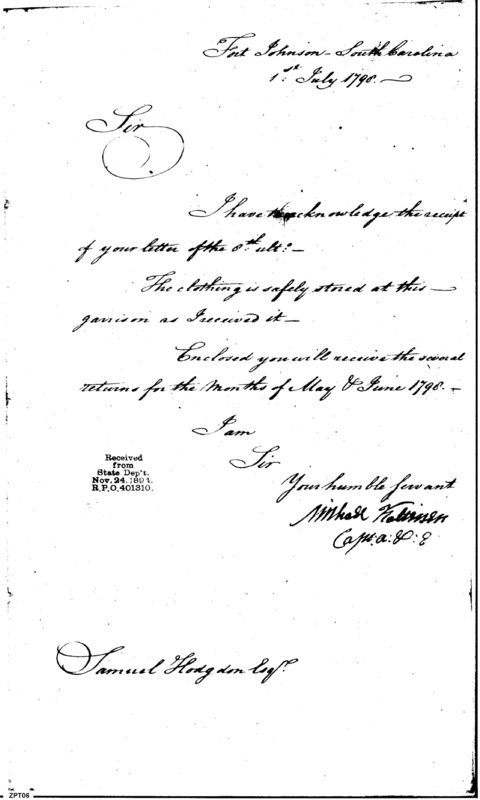 Fort Johnson - South Carolina
1st July 1798. -
Sir
I have to acknowledge the receipt
of your letter of the 8th ulto -
The clothing is safely stored at this -
garrison as I received it -
Enclosed you will receive the several
returns for the Months of May & June 1798. -
I am
Sir
Received
from
State Dep't.
Nov. 24. 1894.
R.P.O. 401310.
Your humble Servant
Michael Kalteisen
Capt. A: & : E
Samuel Hodgdon Esqr.
ZPT06